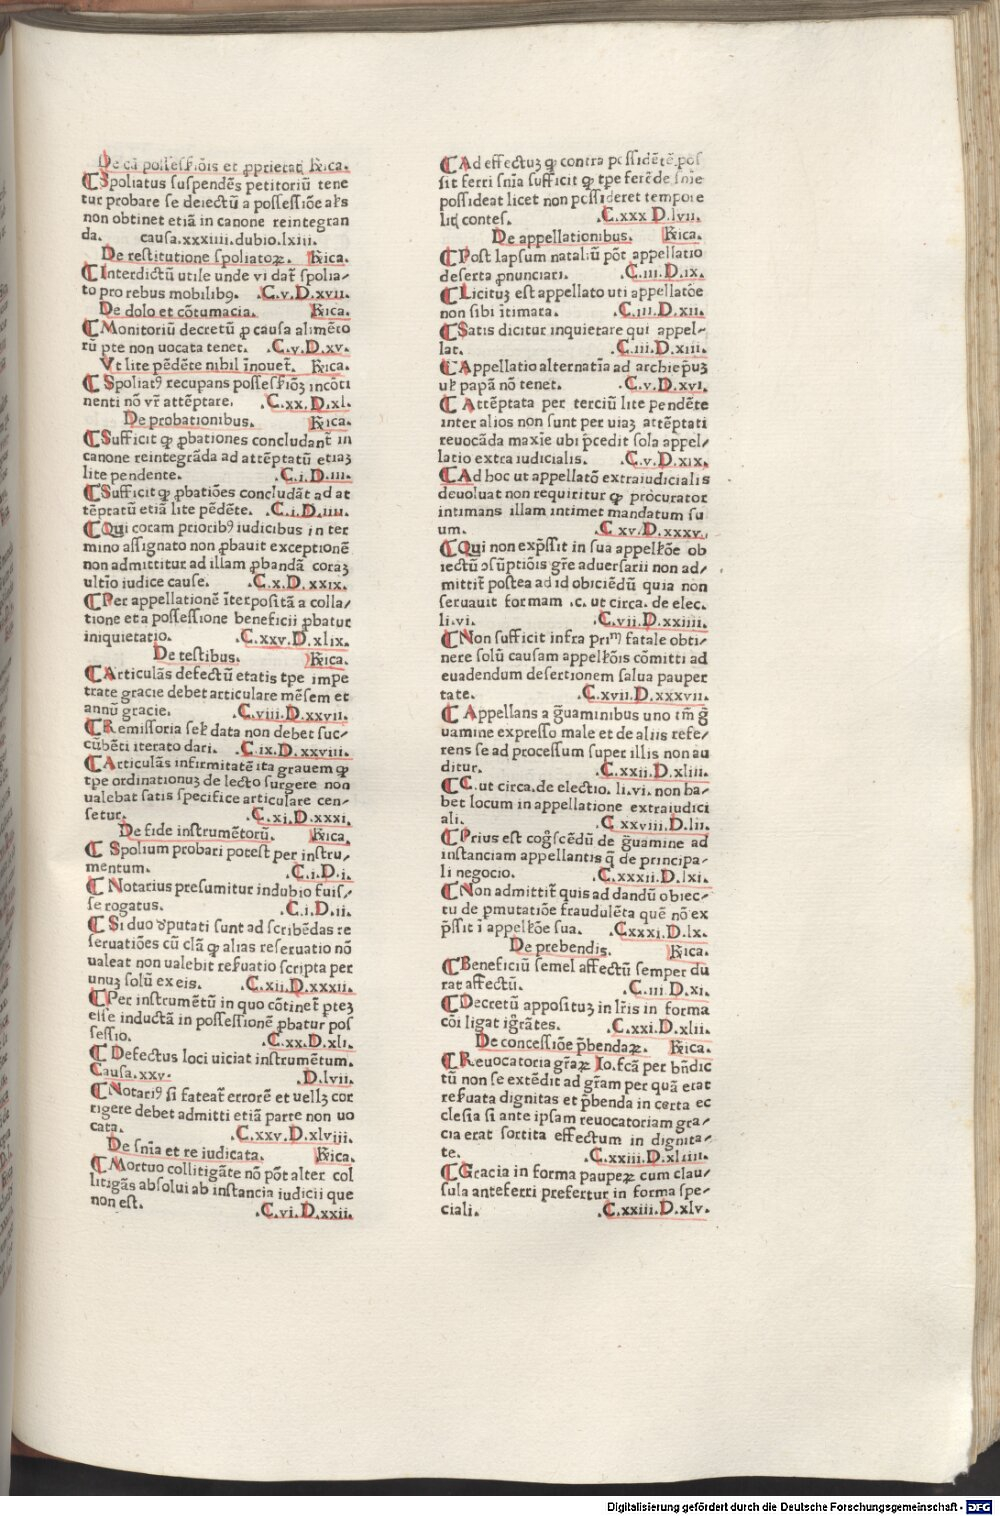 De cā possessiōis et ꝓprietati Rrica.
¶ Spoliatus suspendēs petitoriū tene
tur probare se deiectū a possessiōe al's
non obtinet etiā in canone reintegran
da. causa.xxxiiii.dubio.lxiii.
De restitutione spoliatoꝝ. Rrica.
¶ Interdictū utile unde vi dat᷑ spolia⸗
to pro rebus mobilibꝰ. .C.v.D.xvii.
De dolo et cōtumacia. Rrica.
¶ Monitoriū decretū ꝓ causa alimēto
rū pte non uocata tenet. .C.v.D.xv.
Vt lite pēdēte nihil īnouet᷑. Rrica.
¶ Spoliatꝰ recupans possesłiōꝫ incōti
nenti nō vr̄ attēptare. .C.xx.D.xl.
De probationibus. Rrica.
¶ Sufficit ꝙ ꝓbationes concludant᷑ in
canone reintegrāda ad attēptatū etiaꝫ
lite pendente. .C.i.D.iii.
¶ Sufficit ꝙ ꝓbatiōes concludāt ad at
tēptatū etiā lite pēdēte. .C.i.D.iiii.
¶ Qui coram prioribꝰ iudicibus in ter
mino assignato non ꝓbauit exceptionē
non admittitur ad illam ꝓbandā coraꝫ
ultīo iudice cause. .C.x.D.xxix.
¶ Per appellationē īterpositā a colla⸗
tione et a possessione beneficii ꝓbatur
iniquietatio. .C.xxv.D.xlix.
De testibus. Rrica.
¶ Articulās defectū etatis tpe impe
trate gracie debet articulare mēsem et
annū gracie. .C.viii.D.xxvii.
¶ Remissoria seł data non debet suc⸗
cūbēti iterato dari. .C.ix.D.xxviii.
¶ Articulās infirmitatē ita grauem ꝙ
tpe ordinationuꝫ de lecto surgere non
ualebat satis specifice articulare cen⸗
setur. .C.xi.D.xxxi.
De fide instrumētorū. Rrica.
¶ Spolium probari potest per instru⸗
mentum. .C.i.D.i.
¶ Notarius presumitur indubio fuis⸗
se rogatus. .C.i.D.ii.
¶ Si duo deputati sunt ad scribēdas re
seruatiōes cū clā ꝙ alias reseruatio nō
ualeat non ualebit refuatio scripta per
unuꝫ solū ex eis. .C.xii.D.xxxii.
¶ Per instrumētū in quo cōtinet᷑ pteꝫ
esse inductā in possessionē ꝓbatur pos
sessio. .C.xx.D.xli.
¶ Defectus loci uiciat instrumētum.
Causa.xxv. .D.lvii.
¶ Notariꝰ si fateat᷑ errorē et uelleꝫ cor
rigere debet admitti etiā parte non uo
cata. .C.xxv.D.xlviii.
De snīa et re iudicata. Rrica.
¶ Mortuo collitigāte nō pōt alter col
litigās absolui ab instancia iudicii que
non est. .C.vi.D.xxii.
¶ Ad effectuꝫ ꝙ contra possidētē pos
sit ferri snīa sufficit ꝙ tpe ferēde snīe
possideat licet non possideret tempore
litꝭ contes. .C.xxx D.lvii.
De appellationibus. Rrica.
¶ Post lapsum nataliū pōt appellatio
deserta ꝓnunciari. .C.iii.D.ix.
¶ Licituꝫ est appellato uti appellatōe
non sibi ītimata. .C.iii.D.xii.
¶ Satis dicitur inquietare qui appel⸗
lat. .C.iii.D.xiii.
¶ Appellatio alternatīa ad archiep̄uꝫ
uł papā nō tenet. .C.v.D.xvi.
¶ Attēptata per terciū lite pendēte
inter alios non sunt per uiaꝫ attēptati
reuocāda maxīe ubi p̄cedit sola appel⸗
latio extra iudicialis. .C.v.D.xix.
¶ Ad hoc ut appellatō extraiudicialis
deuoluat non requiritur ꝙ procurator
intimans illam intimet mandatum su
um. .C.xv.D.xxxv.
¶ Qui non exp̄ssit in sua appełłoe ob
iectū ↄsūptiōis gr̄e aduersarii non ad⸗
mittit᷑ postea ad id obiciēdū quia non
seruauit formam .c. ut circa. de elec.
li.vi. .C.vii.D.xxiiii.
¶ Non sufficit infra prim̄ fatale obti⸗
nere solū causam appełłois cōmitti ad
euadendum desertionem salua pauper
tate. .C.xvii.D.xxxvii.
¶ Appellans a ḡuaminibus uno tm̄ ḡ
uamine expresso male et de aliis refe⸗
rens se ad processum super illis non au
ditur. .C.xxii.D.xliii.
¶ C. ut circa.de electio. li.vi. non ha⸗
bet locum in appellatione extraiudici
ali. .C xxviii.D.lii.
¶ Prius est cog̃scēdū de ḡuamine ad
instanciam appellantis q̄ de principa⸗
li negocio. .C.xxxii.D.lxi.
¶ Non admittit᷑ quis ad dandū obiec⸗
tu de pmutatiōe fraudulēta quē nō ex
p̄ssit ī appełłoe sua. .C.xxxi.D.lx.
De prebendis. Rrica.
¶ Beneficiū semel affectū semper du
rat affectū. .C.iii.D.xi.
¶ Decretū appositūꝫ in lr̄is in forma
cōi ligat igr̄ātes. .C.xxi.D.xlii.
De concessiōe p̄bendaꝝ. Rrica.
¶ Reuocatoria gr̄aꝝ Io.fcā per bn̄dic
tū non se extēdit ad gr̄am per quā erat
reſuata dignitas et p̄benda in certa ec
clesia si ante ipsam reuocatoriam gra⸗
cia erat sortita effectum in dignita⸗
te. .C.xxiii.D.xliiii.
¶ Gracia in forma paupeꝝ cum clau⸗
sula anteferri prefertur in forma spe⸗
ciali. .C.xxiii.D.xlv.
Digitalisierung gefördert durch die Deutsche Forschungsgemeinschaft - DFG